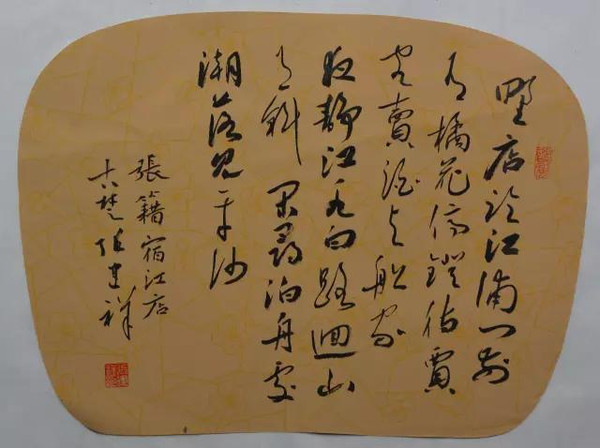 墅店临江浦门前
有橘花停鐙待賈
客賣酒与船家
夜靜江水白路迴山
月斜 閑尋泊舟處
潮落見平沙
張籍宿江店
古楚 祥